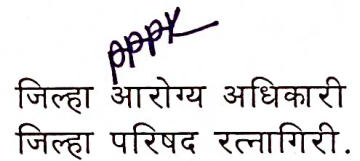 जिल्हा आरोग्य अधिकारी
जिल्हा परिषद रत्नागिरी.